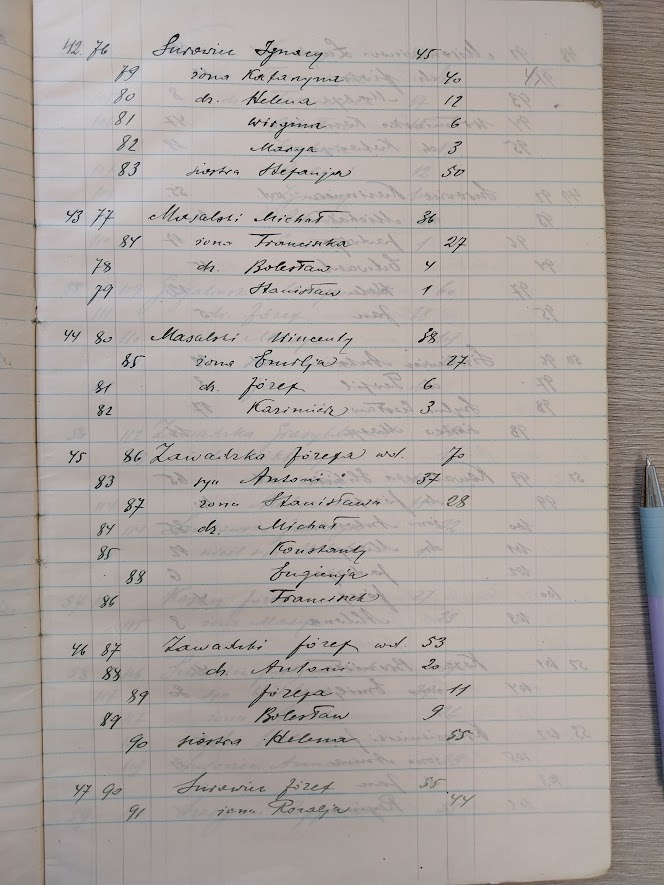 42 76 Surowiec Ignacy 45
79 żona Katarzyna 40
80 dz. Helena 12
81 Wirginia 6
82 Marya 3
83 siostra Stefanja 50
43 77 Masalski Michał 36
84 żona Franciszka 27
78 dz. Bolesław 4
79 Stanisław 1
44 80 Masalski Wincenty 38
85 żona Emilja 27
81 dz. Józef 6
82 Kazimierz 3
45 86 Zawadzka Józefa wd. 70
83 syn Antoni 37
87 żona Stanisława 28
84 dz. Michał
85 Konstanty
88 Eugienja
86 Franciszek
46 87 Zawadzki Józef wd. 53
88 dz. Antoni 20
89 Józefa 11
89 Bolesław 9
90 siostra Helena 55
47 90 Surowiec Józef 55
91 żona Rozalja 44